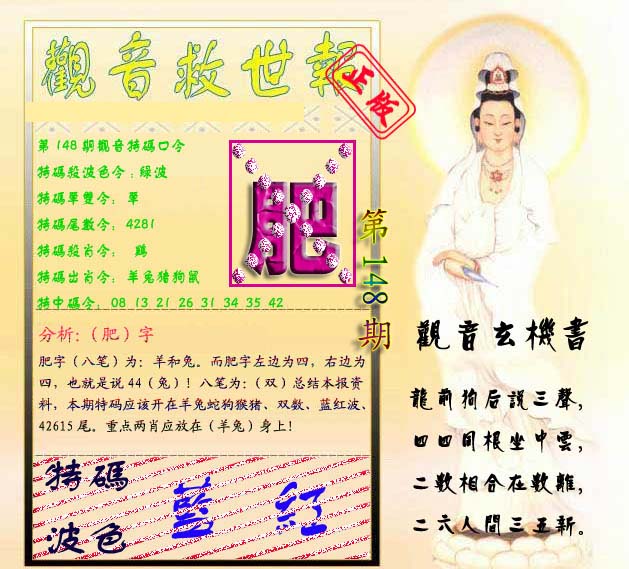 觀音救世報
正版
第148期觀音特碼口令
特碼殺波色令：綠波
特碼單雙令： 單
特碼尾數令：4281
特碼殺肖令： 鷄
特碼出肖令：羊兔猪狗鼠
特中碼令：08 13 21 26 31 34 35 42
肥
第148期
分析：（肥）字
肥字（八笔）为：羊和兔。而肥字左边为四，右边为
四，也就是说44（兔）！八笔为：（双）总结本报资
料，本期特码应该开在羊兔蛇狗猴猪、双数、蓝红波、
42615尾。重点两肖应放在（羊兔）身上！
特碼
波色
藍 紅
觀音玄機書
龍前狗后説三聲，
四四同根坐中雲，
二数相合在数離，
二六人間三五新。